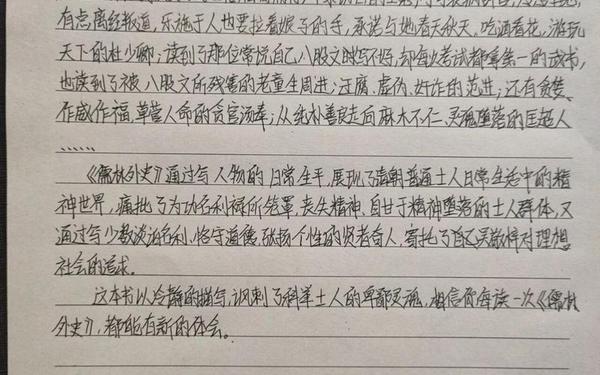 有点离经叛道,乐施于人也要拉着娘子的手,承诺与她春天秋天。吃酒看花,游玩
天下的杜少卿;读到了那位常悦自己八股文时写好,却每次考试都拿第一的武书,
也读到了被八股文所残害的老童生周进;迂腐、虚伪、奸诈的范进;还有贪婪、
作威作福、草菅人命的贪官汤奉;从纯朴善良走向麻木不仁、灵魂堕落的匡超人
……
《儒林外史》通过写人物的日常生平,展现了清朝普通士人日常生活中的精
神世界,痛批了为功名利禄所笼罩,丧失精神,自甘于精神堕落的士人群体,又
通过写少数淡泊名利,恪守道德,张扬个性的贤者奇人,寄托了自己吴敬梓对理想
社会的追求。
这本书以冷静的描写,讽刺了科举士人的卑鄙灵魂,相信你每读一次《儒林
外史》,都能有新的体会。